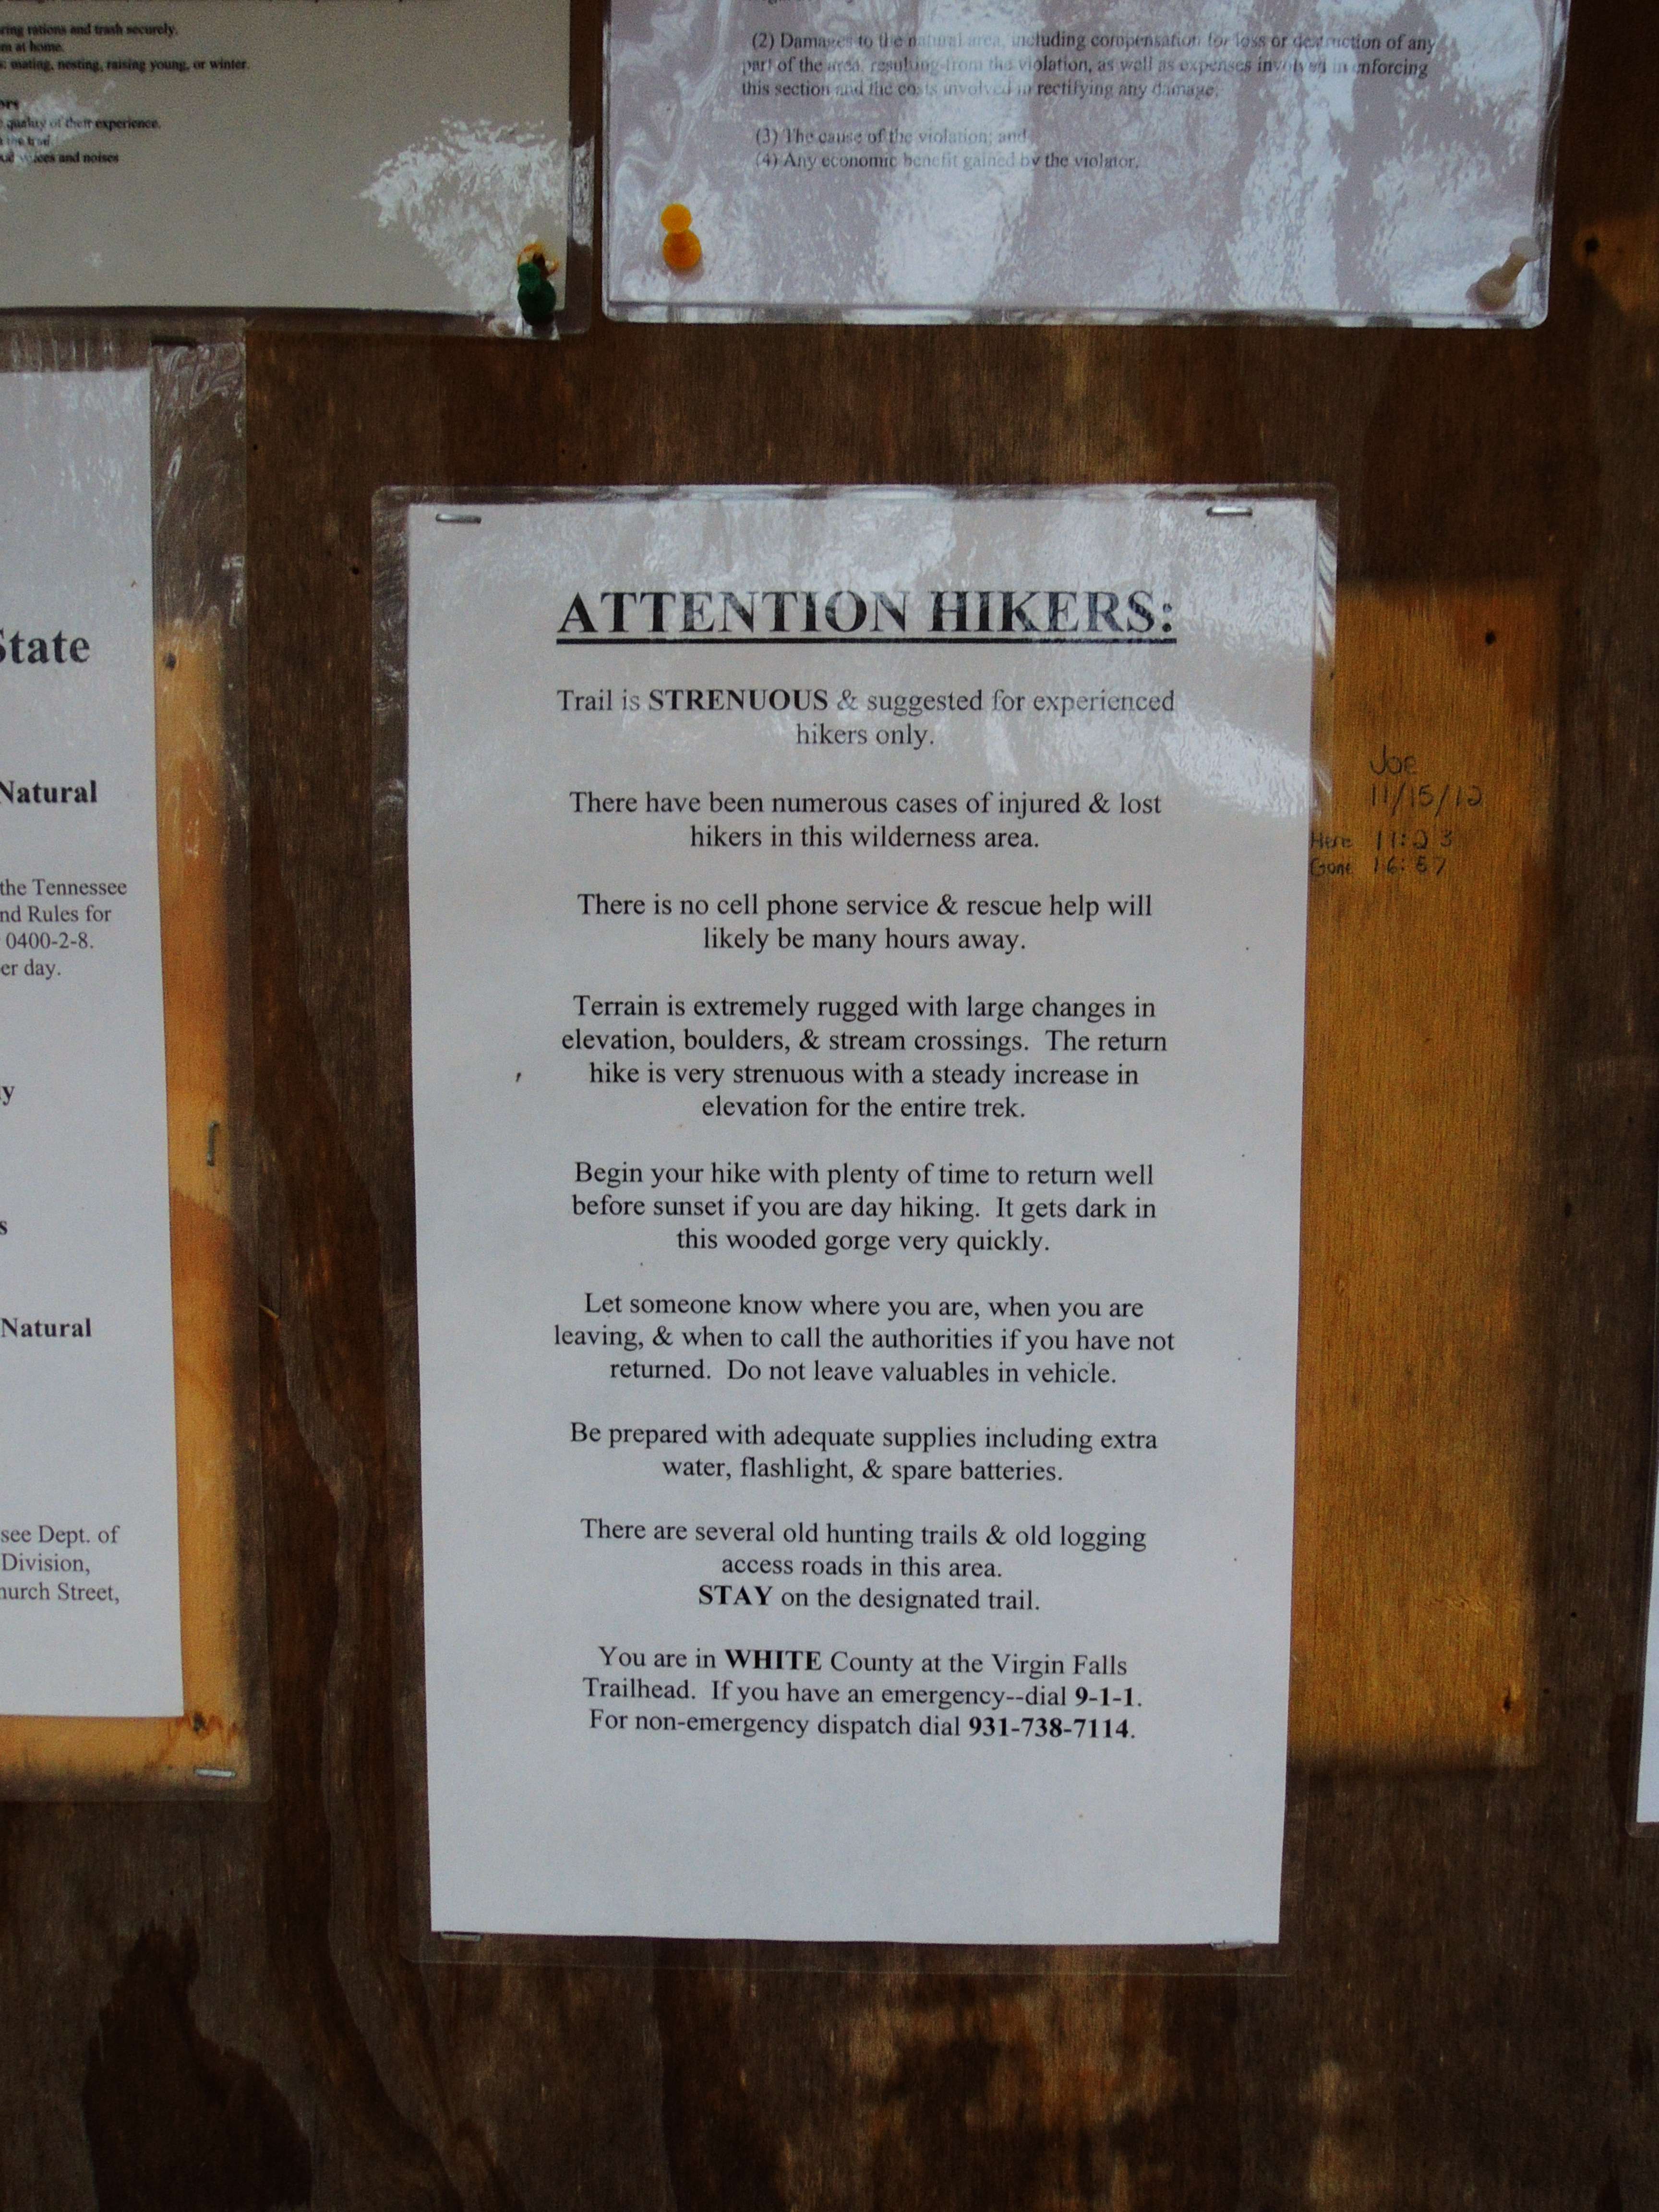 ring rations and trash securely.
m at home.
s: mating, nesting, raising young, or winter.
ors
quality of their experience.
the trail
voices and noises
(2) Damages to the natural area, including compensation for loss or destruction of any
part of the area, resulting from the violation, as well as expenses involved in enforcing
this section and the costs involved in rectifying any damage;
(3) The cause of the violation; and
(4) Any economic benefit gained by the violator.
State
Natural
the Tennessee
nd Rules for
0400-2-8.
er day.
y
s
Natural
see Dept. of
Division,
hurch Street,
ATTENTION HIKERS:
Trail is STRENUOUS & suggested for experienced
hikers only.
There have been numerous cases of injured & lost
hikers in this wilderness area.
There is no cell phone service & rescue help will
likely be many hours away.
Terrain is extremely rugged with large changes in
elevation, boulders, & stream crossings.  The return
hike is very strenuous with a steady increase in
elevation for the entire trek.
Begin your hike with plenty of time to return well
before sunset if you are day hiking.  It gets dark in
this wooded gorge very quickly.
Let someone know where you are, when you are
leaving, & when to call the authorities if you have not
returned.  Do not leave valuables in vehicle.
Be prepared with adequate supplies including extra
water, flashlight, & spare batteries.
There are several old hunting trails & old logging
access roads in this area.
STAY on the designated trail.
You are in WHITE County at the Virgin Falls
Trailhead.  If you have an emergency--dial 9-1-1.
For non-emergency dispatch dial 931-738-7114.
Joe
11/15/12
Here 11:23
Gone 16:57